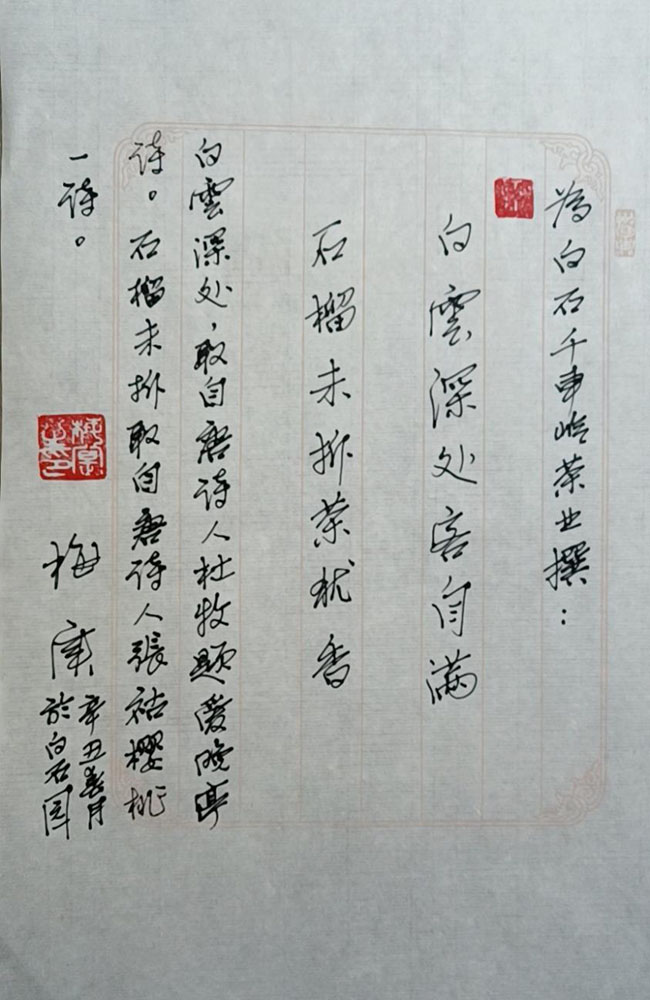 为白石千車岭茶业撰：
白雲深处客自满
石榴未拆茶犹香
白雲深处，取自唐诗人杜牧题爱晚亭
诗。石榴未拆取自唐诗人張祜樱桃
一诗。
梅庚
辛丑
於白石園